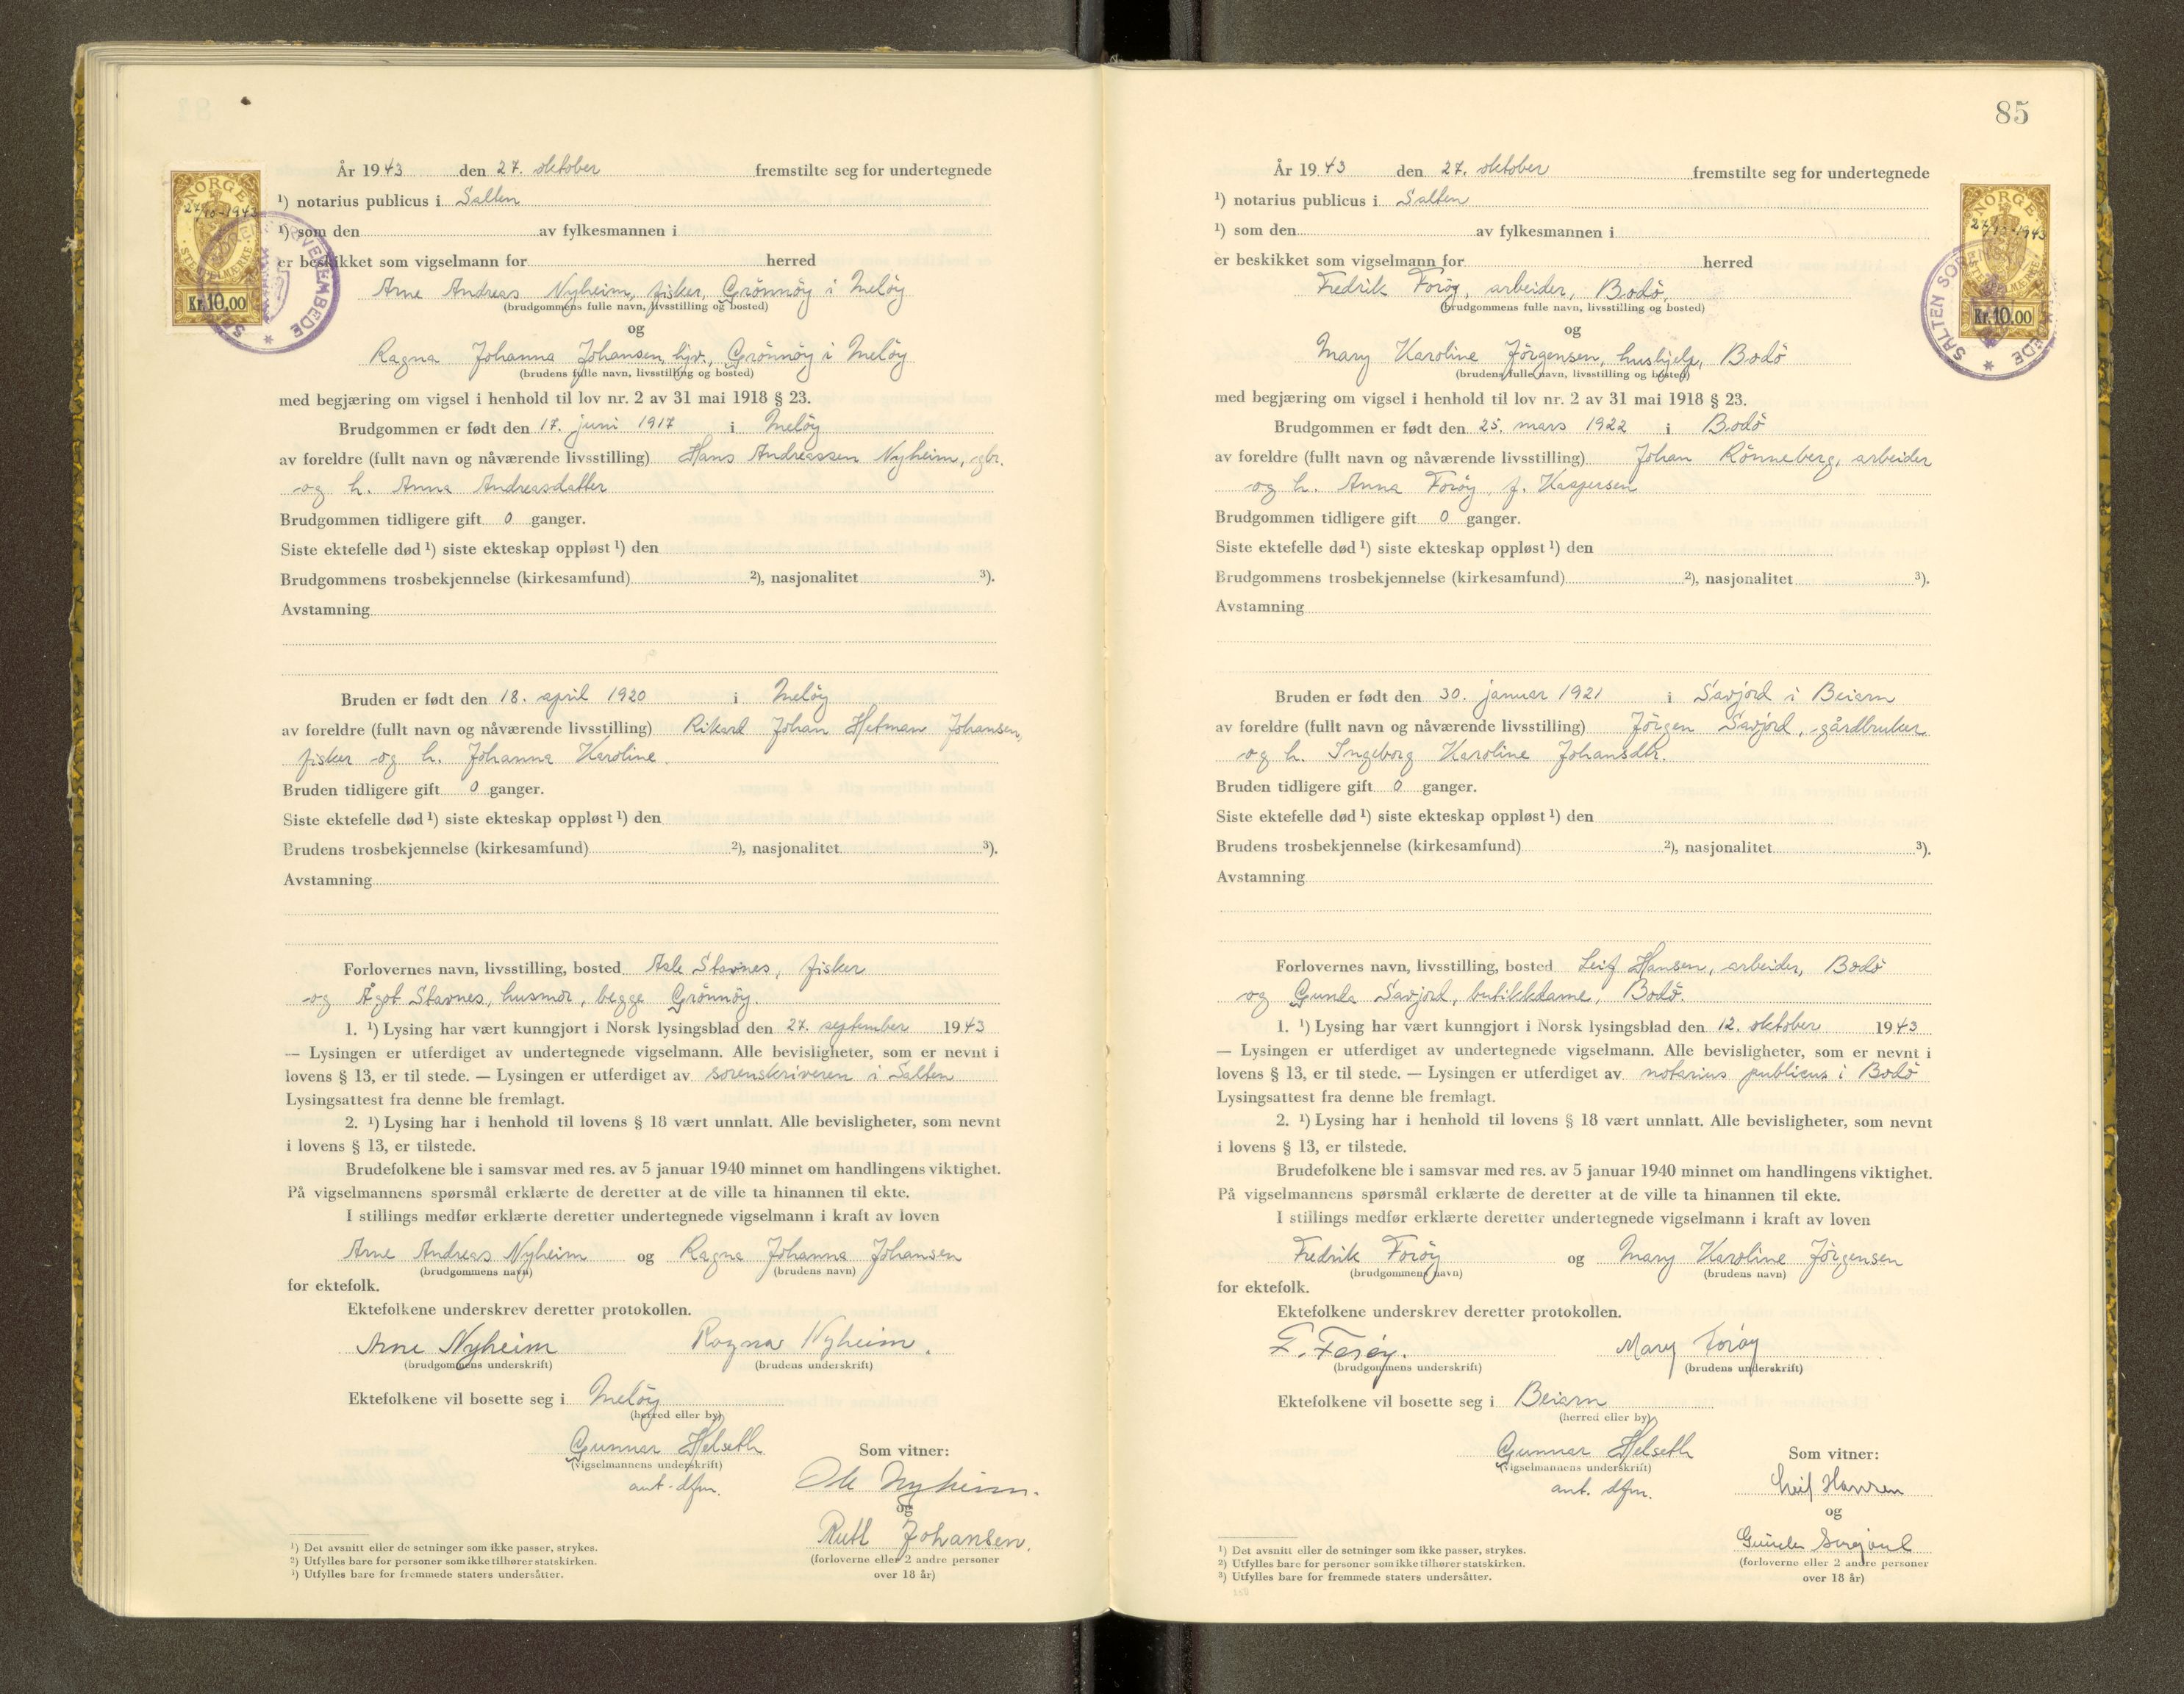 År 1943 den 27. oktober fremstilte seg for undertegnede
¹) notarius publicus i Salten
¹) som den av fylkesmannen i
er beskikket som vigselmann for herred
Arne Andreas Nyheim, fisker, Grönnöy i Melöy
(brudgommens fulle navn, livsstilling og bosted)
og
Ragna Johanna Johansen, hjv., Grönnöy i Melöy
(brudens fulle navn, livsstilling og bosted)
med begjæring om vigsel i henhold til lov nr. 2 av 31 mai 1918 § 23.
Brudgommen er født den 17. juni 1917 i Melöy
av foreldre (fullt navn og nåværende livsstilling) Hans Andreassen Nyheim, gbr.
og h. Anna Andreasdatter
Brudgommen tidligere gift 0 ganger.
Siste ektefelle død ¹) siste ekteskap oppløst ¹) den
Brudgommens trosbekjennelse (kirkesamfund) ²), nasjonalitet ³).
Avstamning
Bruden er født den 18. april 1920 i Melöy
av foreldre (fullt navn og nåværende livsstilling) Rikard Johan Hetman Johansen,
fisker og h. Johanna Karoline.
Bruden tidligere gift 0 ganger.
Siste ektefelle død ¹) siste ekteskap oppløst ¹) den
Brudens trosbekjennelse (kirkesamfund) ²), nasjonalitet ³).
Avstamning
Forlovernes navn, livsstilling, bosted Asle Stavnes, fisker
og Ågot Stavnes, husmor, begge Grönnöy.
1. ¹) Lysing har vært kunngjort i Norsk lysingsblad den 27. september 1943
— Lysingen er utferdiget av undertegnede vigselmann. Alle bevisligheter, som er nevnt i
lovens § 13, er til stede. — Lysingen er utferdiget av sorenskriveren i Salten
Lysingsattest fra denne ble fremlagt.
2. ¹) Lysing har i henhold til lovens § 18 vært unnlatt. Alle bevisligheter, som nevnt
i lovens § 13, er tilstede.
Brudefolkene ble i samsvar med res. av 5 januar 1940 minnet om handlingens viktighet.
På vigselmannens spørsmål erklærte de deretter at de ville ta hinannen til ekte.
I stillings medfør erklærte deretter undertegnede vigselmann i kraft av loven
Arne Andreas Nyheim og Ragna Johanna Johansen
(brudgommens navn) (brudens navn)
for ektefolk.
Ektefolkene underskrev deretter protokollen.
Arne Nyheim Ragna Nyheim.
(brudgommens underskrift) (brudens underskrift)
Ektefolkene vil bosette seg i Melöy
(herred eller by)
Gunnar Helseth Som vitner:
(vigselmannens underskrift)
aut. dfm. Ole Nyheim.
og
Ruth Johansen.
(forloverne eller 2 andre personer
over 18 år)
¹) Det avsnitt eller de setninger som ikke passer, strykes.
²) Utfylles bare for personer som ikke tilhører statskirken.
³) Utfylles bare for fremmede staters undersåtter.
NORGE
27/10-1943
STEMPELMÆRKE
Kr. 10,00
SALTEN SORENSKRIVEREMBEDE
85
År 1943 den 27. oktober fremstilte seg for undertegnede
¹) notarius publicus i Salten
¹) som den av fylkesmannen i
er beskikket som vigselmann for herred
Fredrik Foröy, arbeider, Bodö,
(brudgommens fulle navn, livsstilling og bosted)
og
Mary Karoline Jörgensen, hushjelp, Bodö
(brudens fulle navn, livsstilling og bosted)
med begjæring om vigsel i henhold til lov nr. 2 av 31 mai 1918 § 23.
Brudgommen er født den 25. mars 1922 i Bodö
av foreldre (fullt navn og nåværende livsstilling) Johan Rönneberg, arbeider
og h. Anna Foröy f. Kaspersen
Brudgommen tidligere gift 0 ganger.
Siste ektefelle død ¹) siste ekteskap oppløst ¹) den
Brudgommens trosbekjennelse (kirkesamfund) ²), nasjonalitet ³).
Avstamning
Bruden er født den 30. januar 1921 i Savjord i Beiarn
av foreldre (fullt navn og nåværende livsstilling) Jörgen Savjord, gårdbruker
og h. Ingeborg Karoline Johansdtr.
Bruden tidligere gift 0 ganger.
Siste ektefelle død ¹) siste ekteskap oppløst ¹) den
Brudens trosbekjennelse (kirkesamfund) ²), nasjonalitet ³).
Avstamning
Forlovernes navn, livsstilling, bosted Leif Hansen, arbeider, Bodö
og Gunda Savjord, butikkdame, Bodö.
1. ¹) Lysing har vært kunngjort i Norsk lysingsblad den 12. oktober 1943
— Lysingen er utferdiget av undertegnede vigselmann. Alle bevisligheter, som er nevnt i
lovens § 13, er til stede. — Lysingen er utferdiget av notarius publicus i Bodö
Lysingsattest fra denne ble fremlagt.
2. ¹) Lysing har i henhold til lovens § 18 vært unnlatt. Alle bevisligheter, som nevnt
i lovens § 13, er tilstede.
Brudefolkene ble i samsvar med res. av 5 januar 1940 minnet om handlingens viktighet.
På vigselmannens spørsmål erklærte de deretter at de ville ta hinannen til ekte.
I stillings medfør erklærte deretter undertegnede vigselmann i kraft av loven
Fredrik Foröy og Mary Karoline Jörgensen
(brudgommens navn) (brudens navn)
for ektefolk.
Ektefolkene underskrev deretter protokollen.
F. Foröy. Mary Foröy
(brudgommens underskrift) (brudens underskrift)
Ektefolkene vil bosette seg i Beiarn
(herred eller by)
Gunnar Helseth Som vitner:
(vigselmannens underskrift)
aut. dfm. Leif Hansen
og
Gunda Savjord
(forloverne eller 2 andre personer
over 18 år)
¹) Det avsnitt eller de setninger som ikke passer, strykes.
²) Utfylles bare for personer som ikke tilhører statskirken.
³) Utfylles bare for fremmede staters undersåtter.
NORGE
27/10-1943
Kr. 10,00
SALTEN SORENSKRIVEREMBEDE